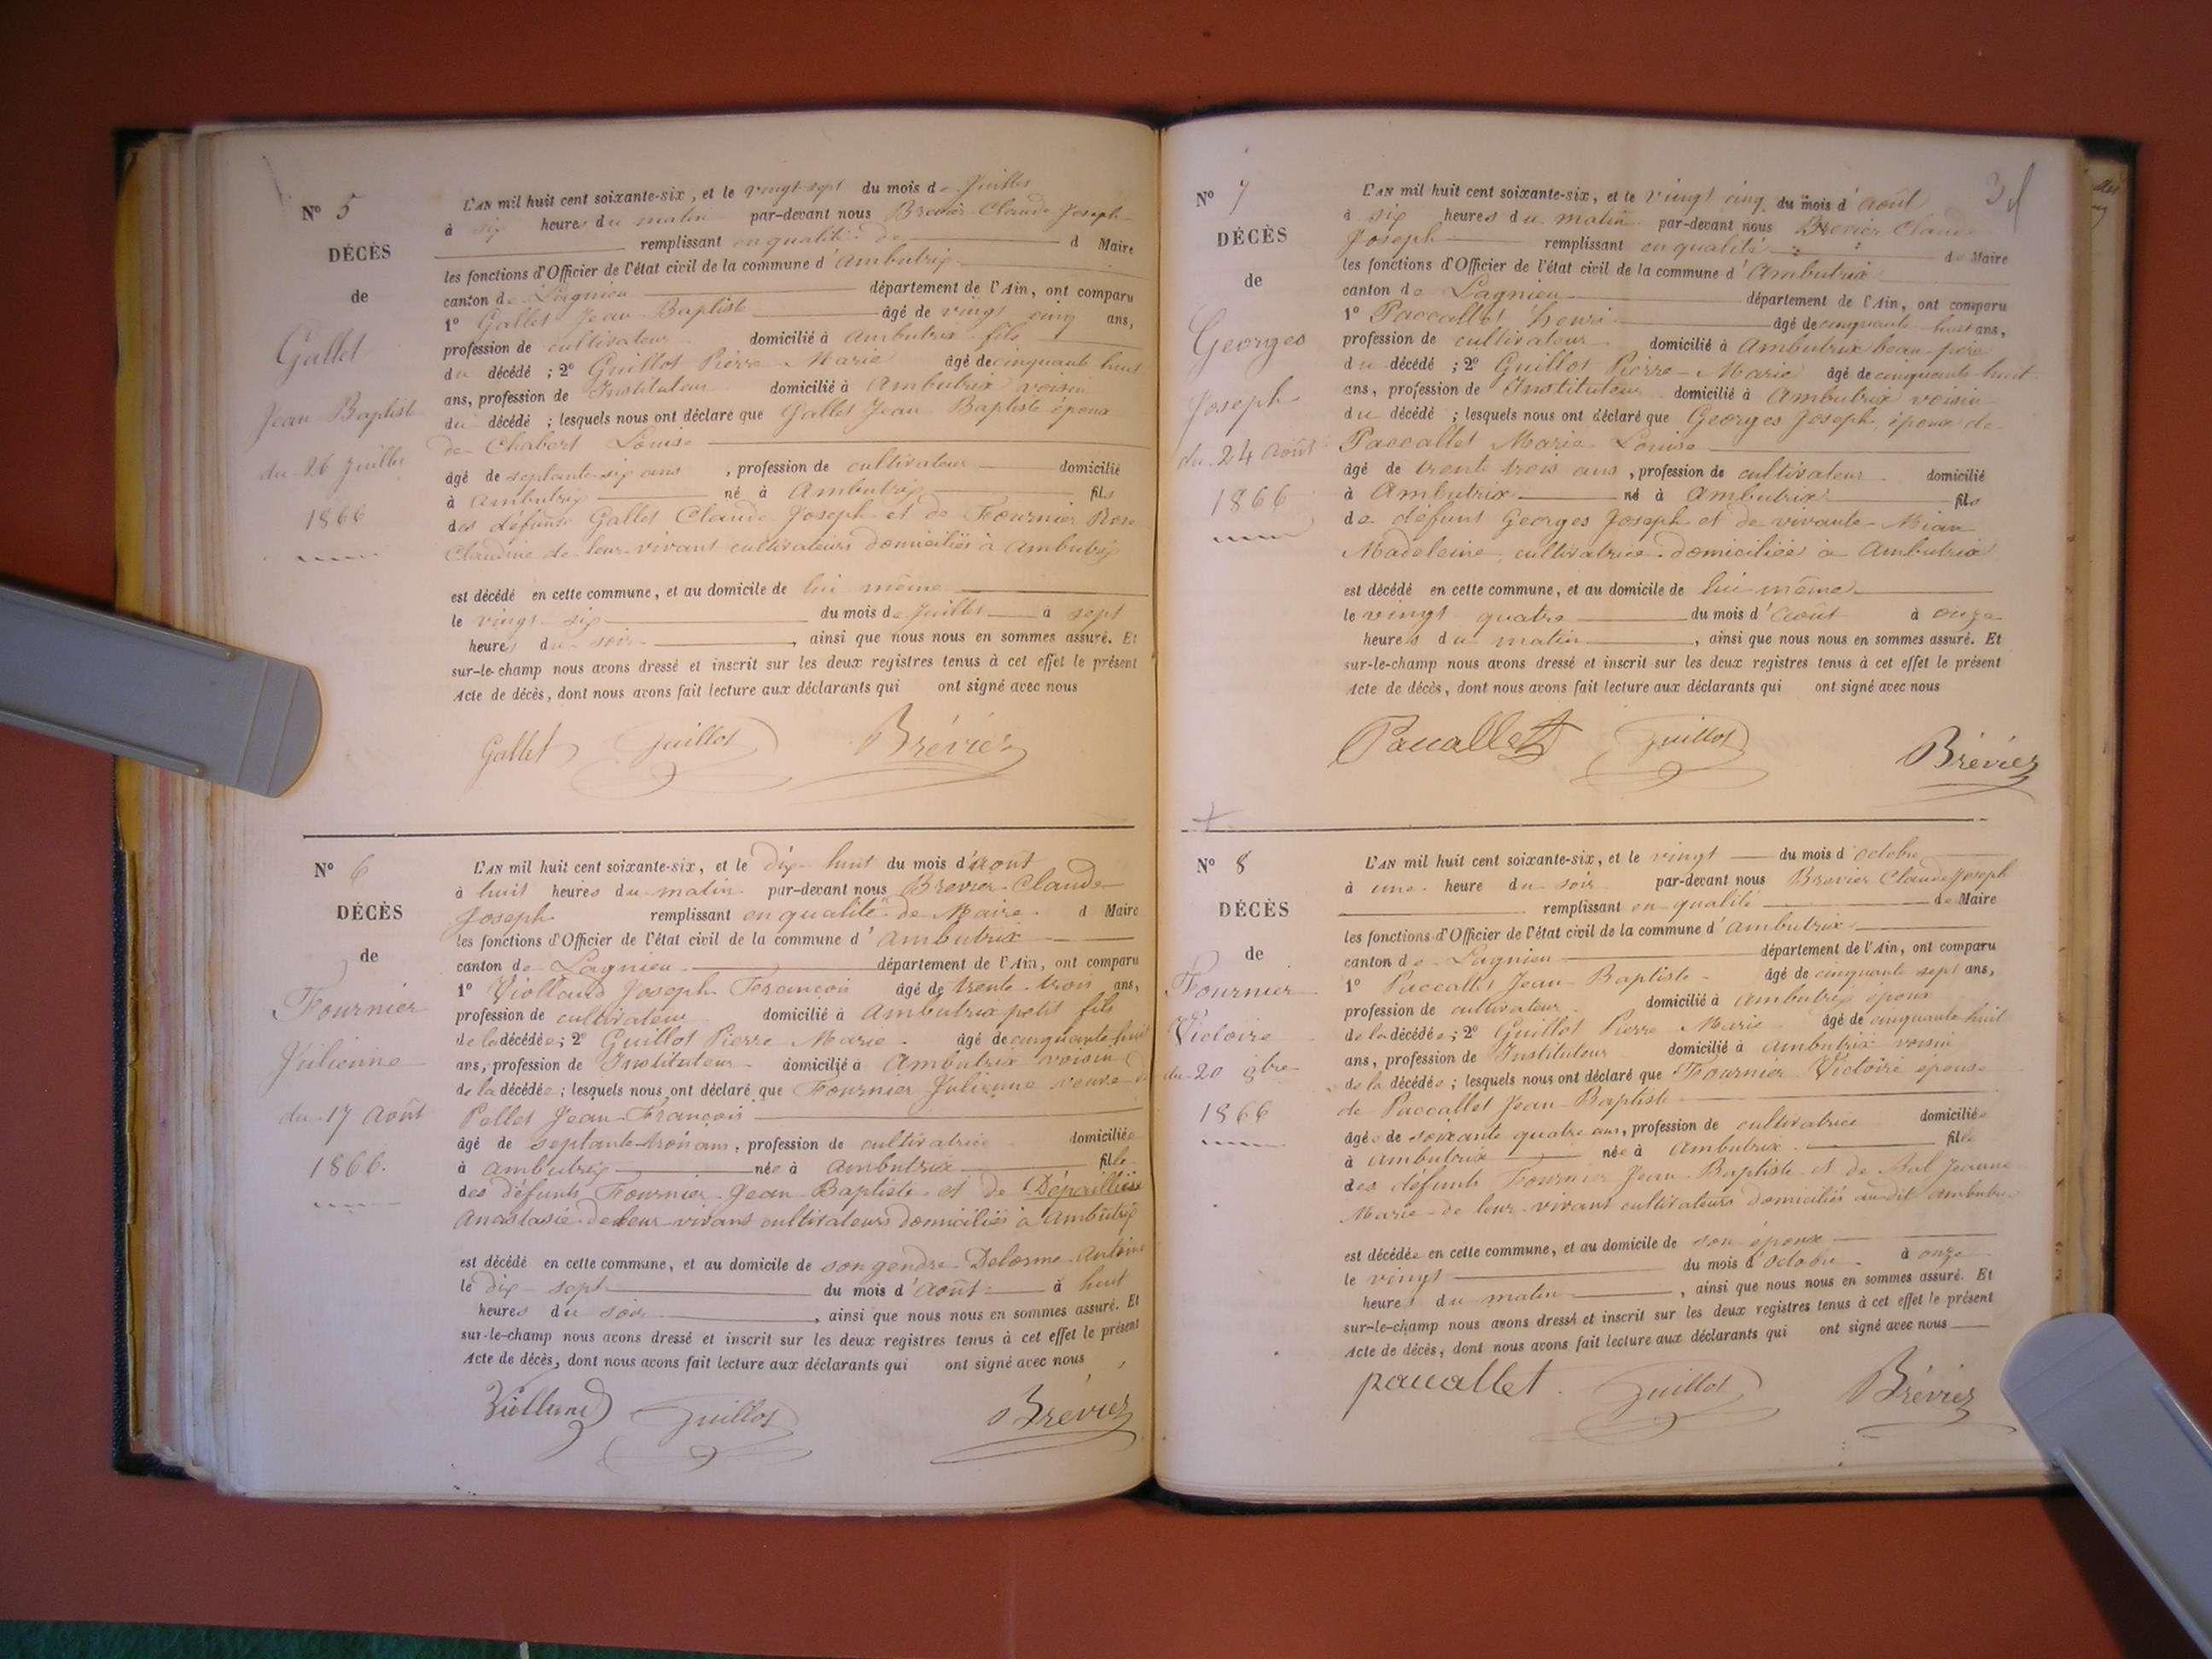 N° 5
DÉCÈS
de
Gallet
Jean Baptist
du 26 Juillet
1866
L'AN mil huit cent soixante-six, et le vingt sept du mois de Juillet
à six heures du matin par-devant nous Brevier Claude Joseph
remplissant en qualité de d Maire
les fonctions d'Officier de l'état civil de la commune d'Ambutrix
canton de Lagnieu département de l'Ain, ont comparu
1° Gallet Jean Baptiste âgé de vingt cinq ans,
profession de cultivateur domicilié à Ambutrix fils
du décédé ; 2° Guillot Pierre Marie âgé de cinquante huit
ans, profession de Instituteur domicilié à Ambutrix voisin
du décédé ; lesquels nous ont déclaré que Gallet Jean Baptiste époux
de Chabert Louise
âgé de septante six ans, profession de cultivateur domicilié
à Ambutrix né à Ambutrix fils
des défunts Gallet Claude Joseph et de Fournier Rose
Claudine de leur vivant cultivateurs domiciliés à Ambutrix
est décédé en cette commune, et au domicile de lui même
le vingt six du mois de Juillet à sept
heures du soir, ainsi que nous nous en sommes assuré. Et
sur-le-champ nous avons dressé et inscrit sur les deux registres tenus à cet effet le présent
Acte de décès, dont nous avons fait lecture aux déclarants qui ont signé avec nous
Gallet Guillot Brévier
N° 6
DÉCÈS
de
Fournier
Julienne
du 17 Août
1866.
L'AN mil huit cent soixante-six, et le dix huit du mois d'Août
à huit heures du matin par-devant nous Brevier Claude
Joseph remplissant en qualité de Maire d Maire
les fonctions d'Officier de l'état civil de la commune d'Ambutrix
canton de Lagnieu département de l'Ain, ont comparu
1° Violland Joseph François âgé de trente trois ans,
profession de cultivateur domicilié à Ambutrix petit fils
de la décédée ; 2° Guillot Pierre Marie âgé de cinquante huit
ans, profession de Instituteur domicilié à Ambutrix voisin
de la décédée ; lesquels nous ont déclaré que Fournier Julienne veuve de
Pellet Jean François
âgé de septante trois ans, profession de cultivatrice domiciliée
à Ambutrix née à Ambutrix fille
des défunts Fournier Jean Baptiste et de
Anastasie de leur vivant cultivateurs domiciliés à Ambutrix
est décédé en cette commune, et au domicile de son gendre Delorme Antoine
le dix sept du mois d'Août à huit
heures du soir, ainsi que nous nous en sommes assuré. Et
sur-le-champ nous avons dressé et inscrit sur les deux registres tenus à cet effet le présent
Acte de décès, dont nous avons fait lecture aux déclarants qui ont signé avec nous
Violland Guillot Brévier
N° 7
DÉCÈS
de
Georges
Joseph
du 24 Août
1866
L'AN mil huit cent soixante-six, et le vingt cinq du mois d'Août
à six heures du matin par-devant nous Brevier Claude
Joseph remplissant en qualité de Maire
les fonctions d'Officier de l'état civil de la commune d'Ambutrix
canton de Lagnieu département de l'Ain, ont comparu
1° Paccallet henri âgé de cinquante huit ans,
profession de cultivateur domicilié à Ambutrix beau-père
du décédé ; 2° Guillot Pierre Marie âgé de cinquante huit
ans, profession de Instituteur domicilié à Ambutrix voisin
du décédé ; lesquels nous ont déclaré que Georges Joseph époux de
Paccallet Marie Louise
âgé de trente trois ans, profession de cultivateur domicilié
à Ambutrix né à Ambutrix fils
de défunt Georges Joseph et de vivante Mian
Madeleine cultivatrice domiciliée à Ambutrix
est décédé en cette commune, et au domicile de lui même
le vingt quatre du mois d'Août à onze
heures du matin, ainsi que nous nous en sommes assuré. Et
sur-le-champ nous avons dressé et inscrit sur les deux registres tenus à cet effet le présent
Acte de décès, dont nous avons fait lecture aux déclarants qui ont signé avec nous
Paccallet Guillot Brévier
N° 8
DÉCÈS
de
Fournier
Victoire
du 20 8bre
1866
L'AN mil huit cent soixante-six, et le vingt du mois d'Octobre
à une heure du soir par-devant nous Brevier Claude Joseph
remplissant en qualité de Maire
les fonctions d'Officier de l'état civil de la commune d'Ambutrix
canton de Lagnieu département de l'Ain, ont comparu
1° Paccallet Jean Baptiste âgé de cinquante sept ans,
profession de cultivateur domicilié à Ambutrix époux
de la décédée ; 2° Guillot Pierre Marie âgé de cinquante huit
ans, profession de Instituteur domicilié à Ambutrix voisin
de la décédée ; lesquels nous ont déclaré que Fournier Victoire épouse
de Paccallet Jean Baptiste
âgée de soixante quatre ans, profession de cultivatrice domiciliée
à Ambutrix née à Ambutrix fille
des défunts Fournier Jean Baptiste et de Jeanne
Marie de leur vivant cultivateurs domiciliés audit Ambutrix
est décédée en cette commune, et au domicile de son époux
le vingt du mois d'Octobre à onze
heures du matin, ainsi que nous nous en sommes assuré. Et
sur-le-champ nous avons dressé et inscrit sur les deux registres tenus à cet effet le présent
Acte de décès, dont nous avons fait lecture aux déclarants qui ont signé avec nous
paccallet Guillot Brévier